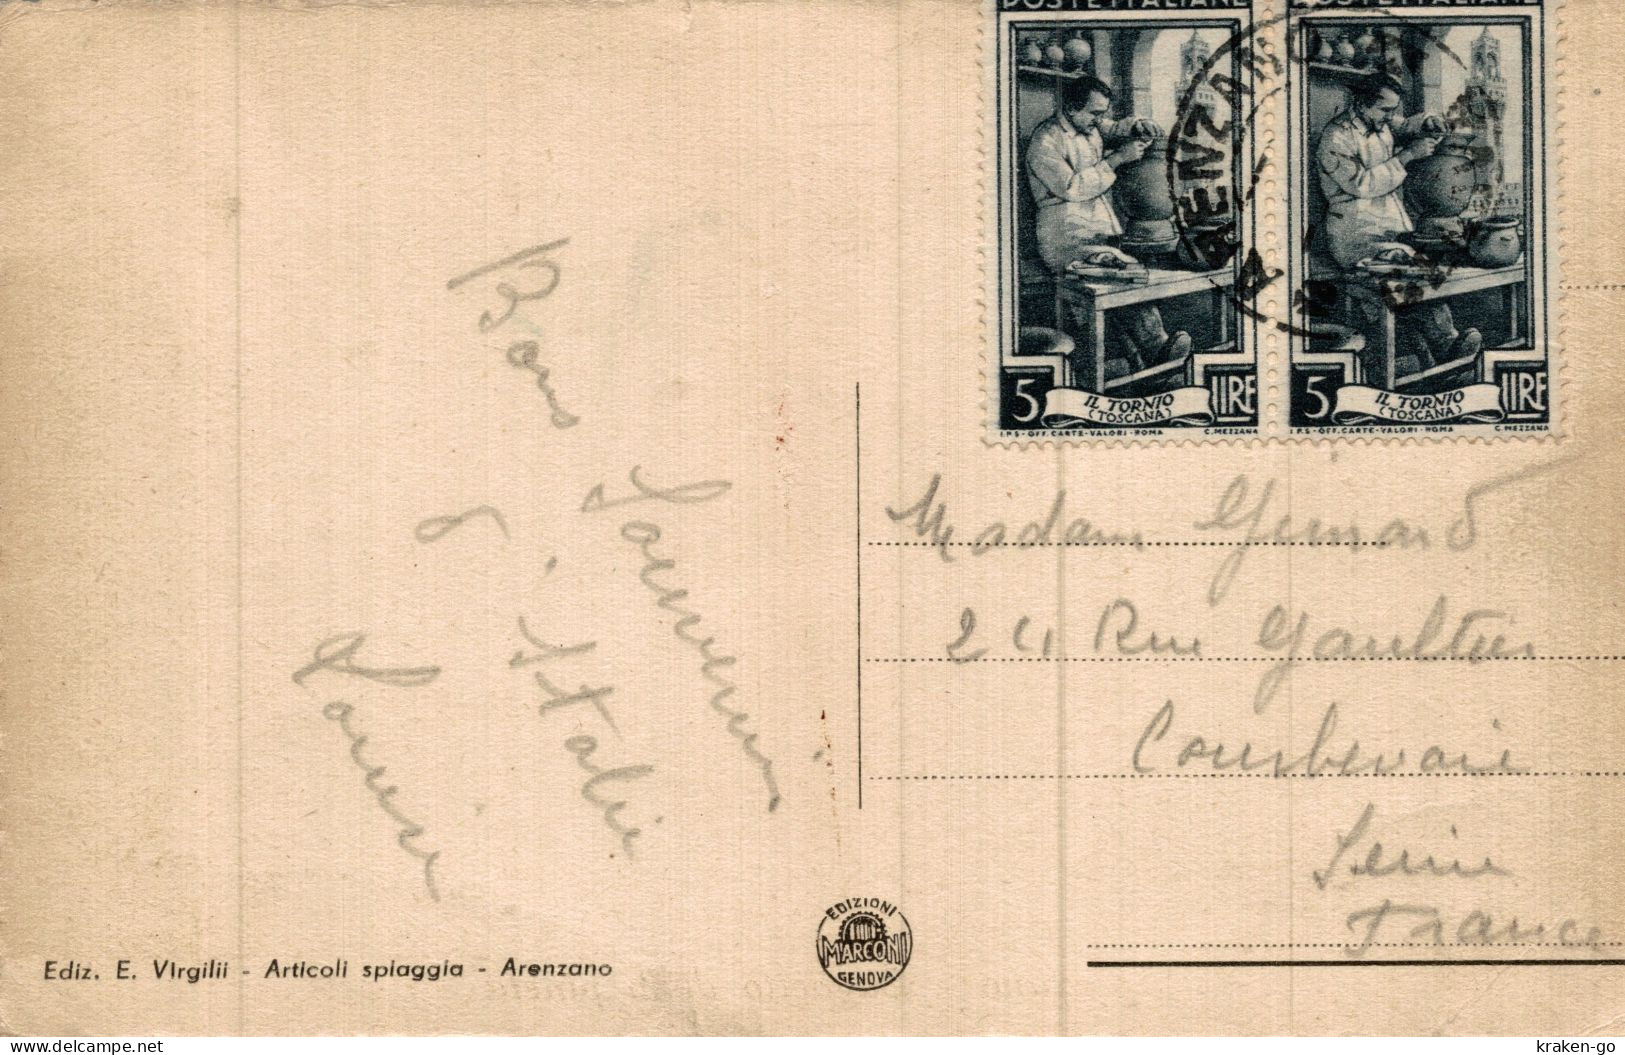 POSTE ITALIANE
POSTE ITALIANE
ARENZANO
GENOVA
5 LIRE
IL TORNIO
(TOSCANA)
I.P.S - OFF. CARTE-VALORI - ROMA
C. MEZZANA
5 LIRE
IL TORNIO
(TOSCANA)
I.P.S - OFF. CARTE-VALORI - ROMA
C. MEZZANA
Bons
Souvenirs
d'Italie
Louise
Madam
24 Rue Gaultier
Courbevoie
Seine
France
EDIZIONI
MARCONI
GENOVA
Ediz. E. Virgilii - Articoli spiaggia - Arenzano
kraken-go
www.delcampe.net